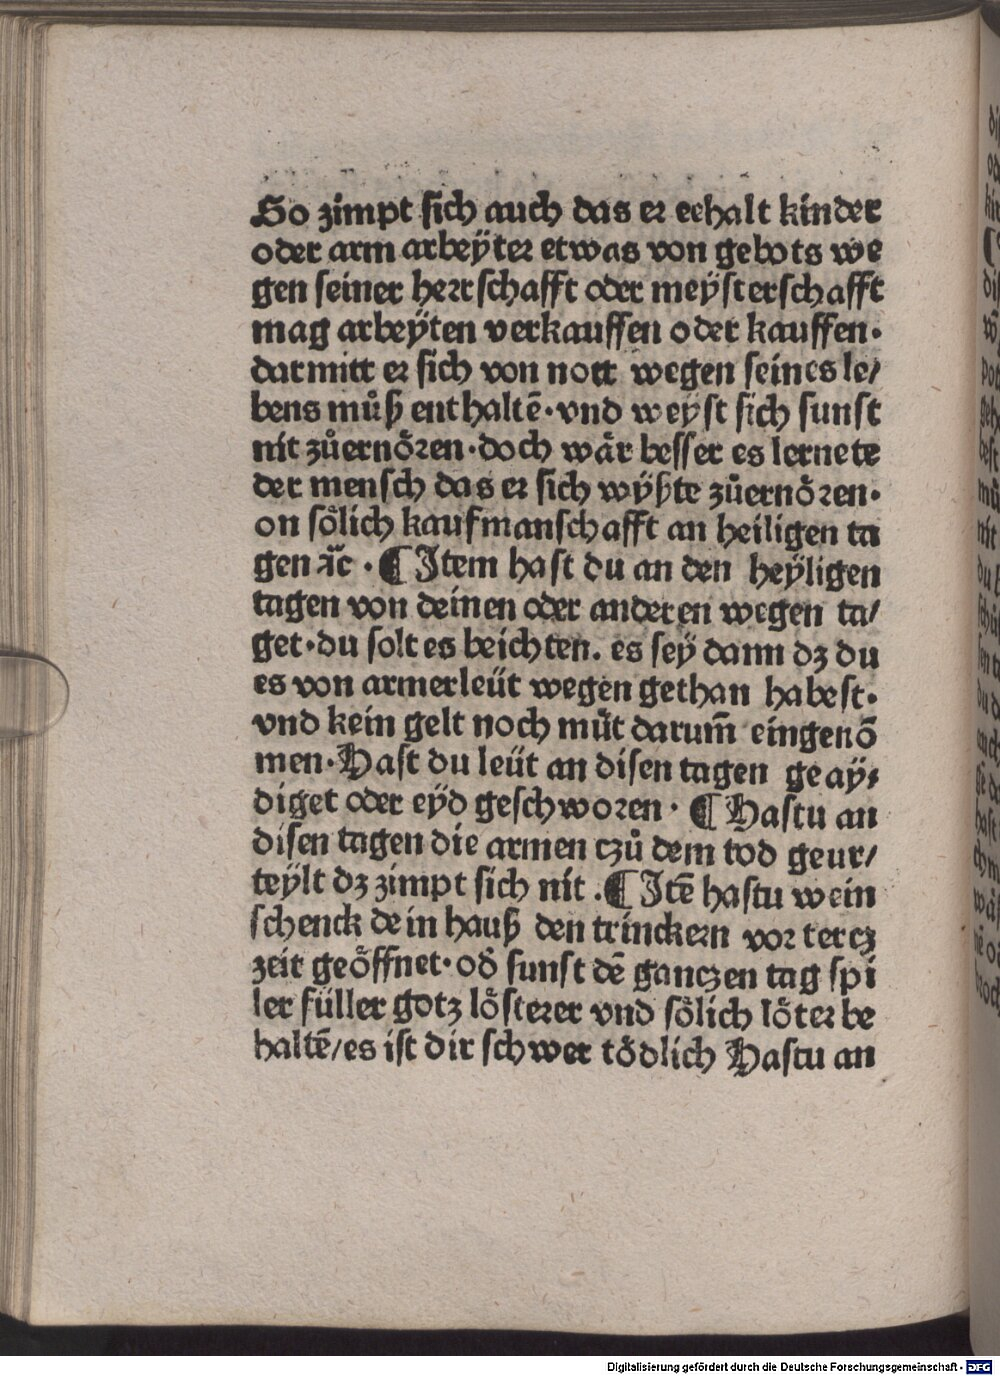 So zimpt sich auch das er eehalt kinder
oder arm arbeÿter etwas von gebots we
gen seiner herrschafft oder meÿsterschafft
mag arbeÿten verkauffen oder kauffen·
darmitt er sich von nott wegen seines le/
bens můß enthaltē·vnd weyst sich sunst
nit zůernoͤren·doch waͤr besser es lernete
der mensch das er sich wÿßte zůernoͤren·
on soͤlich kaufmanschafft an heiligen ta
gen ꝛc̈ · ¶ Item hast du an den heÿligen
tagen von deinen oder anderen wegen ta/
get·du solt es beichten. es seÿ dann dz du
es von armerleüt wegen gethan habest·
vnd kein gelt noch muͤt darum̄ eingenō
men·Hast du leüt an disen tagen geaÿ/
diget oder eÿd geschworen · ¶ Hastu an
disen tagen die armen czů dem tod geur/
teÿlt dz zimpt sich nit .¶ Itē hastu wein
schenck dein hauß den trinckern vor tercz
zeit geoͤffnet·od̓ sunst dē ganczen tag spi
ler füller gotz loͤsterer vnd soͤlich loͤter be
haltē/es ist dir schwer toͤdlich Hastu an
Digitalisierung gefördert durch die Deutsche Forschungsgemeinschaft · DFG